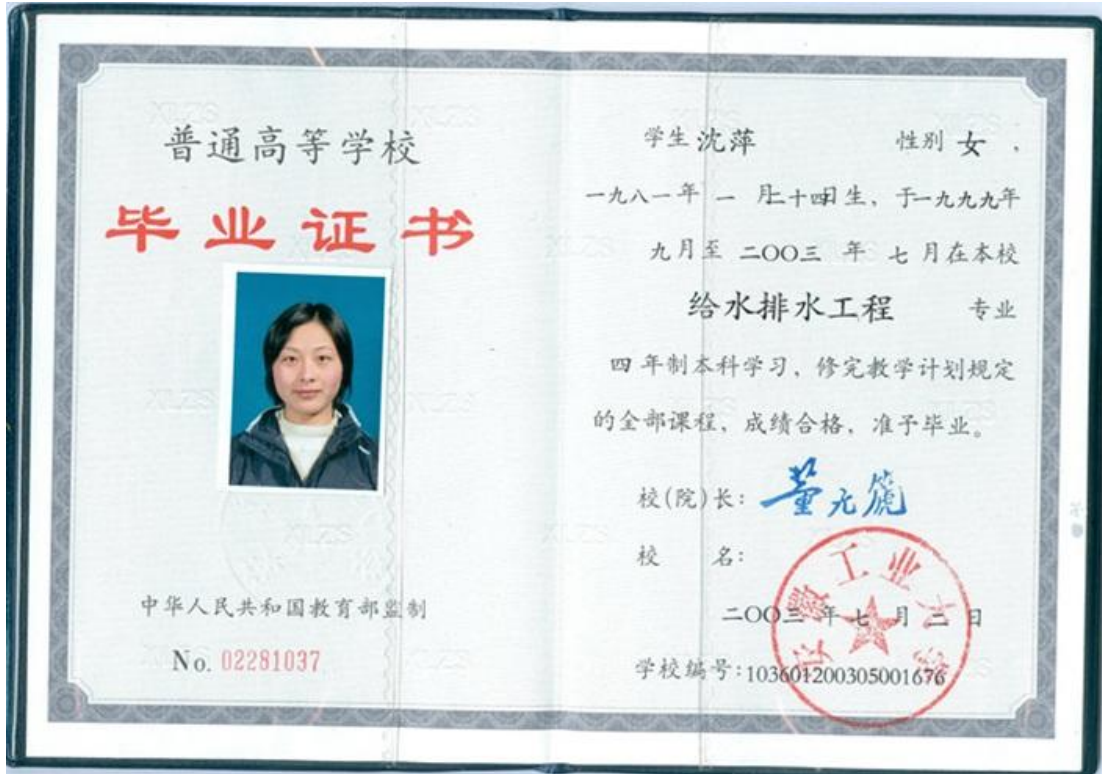 普通高等学校
毕业证书
中华人民共和国教育部监制
No. 02281037
学生 沈萍 性别 女，
一九八一年 一 月二十四日生，于一九九九年
九月至 二〇〇三 年 七 月在本校
给水排水工程 专业
四 年制本科学习，修完教学计划规定
的全部课程，成绩合格，准予毕业。
校(院)长：董元篪
校 名：
安徽工业大学
二〇〇三 年 七 月 二 日
学校编号：103601200305001676